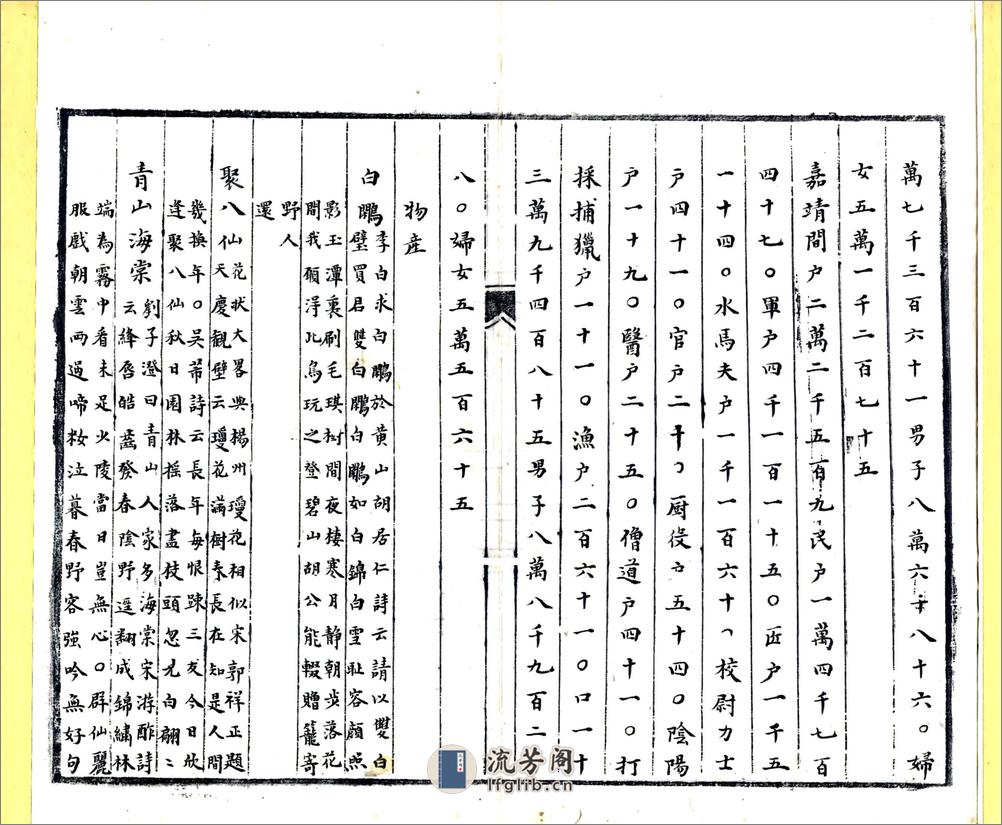 萬七千三百六十一男子八萬六千八十六〇婦
女五萬一千二百七十五
嘉靖間户二萬二千五百九民户一萬四千七百
四十七〇軍户四千一百一十五〇匠户一千五
一十四〇水馬夫户一千一百六十〇校尉力士
户四十一〇官户二十〇厨役户五十四〇陰陽
户一十九〇醫户二十五〇僧道户四十一〇打
採捕獵户一十一〇漁户二百六十一〇口一十
三萬九千四百八十五男子八萬八千九百二
八〇婦女五萬五百六十五
物産
白鷴
李白求白鷴於黄山胡居仁詩云請以雙白
璧買君雙白鷴白鷴如白錦白雪耻容顔照
影玉潭裏刷毛琪树間夜棲寒月静朝步落花
間我願淂此鳥玩之登碧山胡公能輟贈籠寄
野人
還
聚八仙
花狀大畧與楊州瓊花相似宋郭祥正題
天慶観壁云瓊花滿樹春長在知是人間
幾换年〇吴芾詩云長年每恨踈三友今日欣
逢聚八仙秋日園林摇落盡枝頭忽見白翩〻
青山海棠
劉子澄曰青山人家多海棠宋游酢詩
云絳唇皓齒發春陰野逕翻成錦繡林
端為霧中看未足火陵當日豈無心〇群仙麗
服戲朝雲雨過啼粧泣暮春野容強吟無好句
流芳阁
lfglib.cn